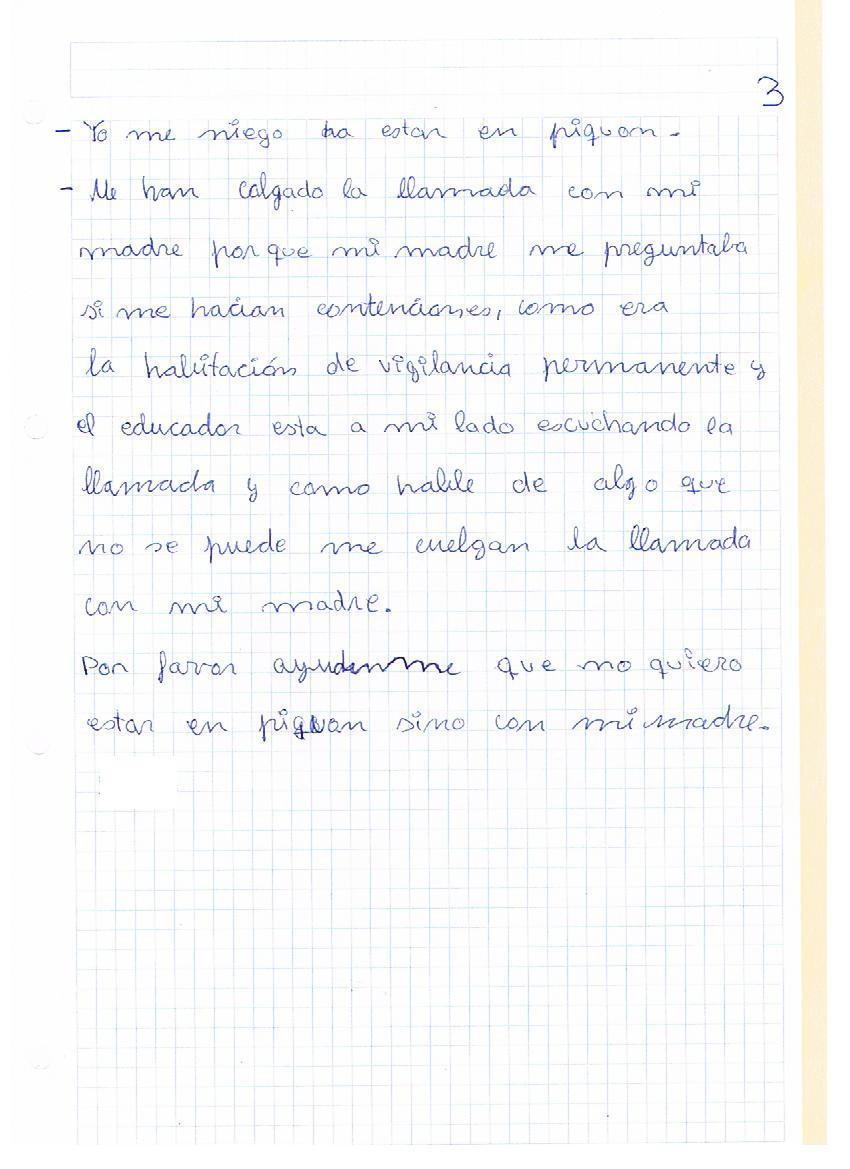 3
- Yo me niego ha estar en piquan.
- Me han colgado la llamada con mi
madre por que mi madre me preguntaba
si me hacian contenciones, como era
la habitación de vigilancia permanente y
el educador esta a mi lado escuchando la
llamada y como hable de algo que
no se puede me cuelgan la llamada
con mi madre.
Por favor ayudenme que no quiero
estar en piquan sino con mi madre.